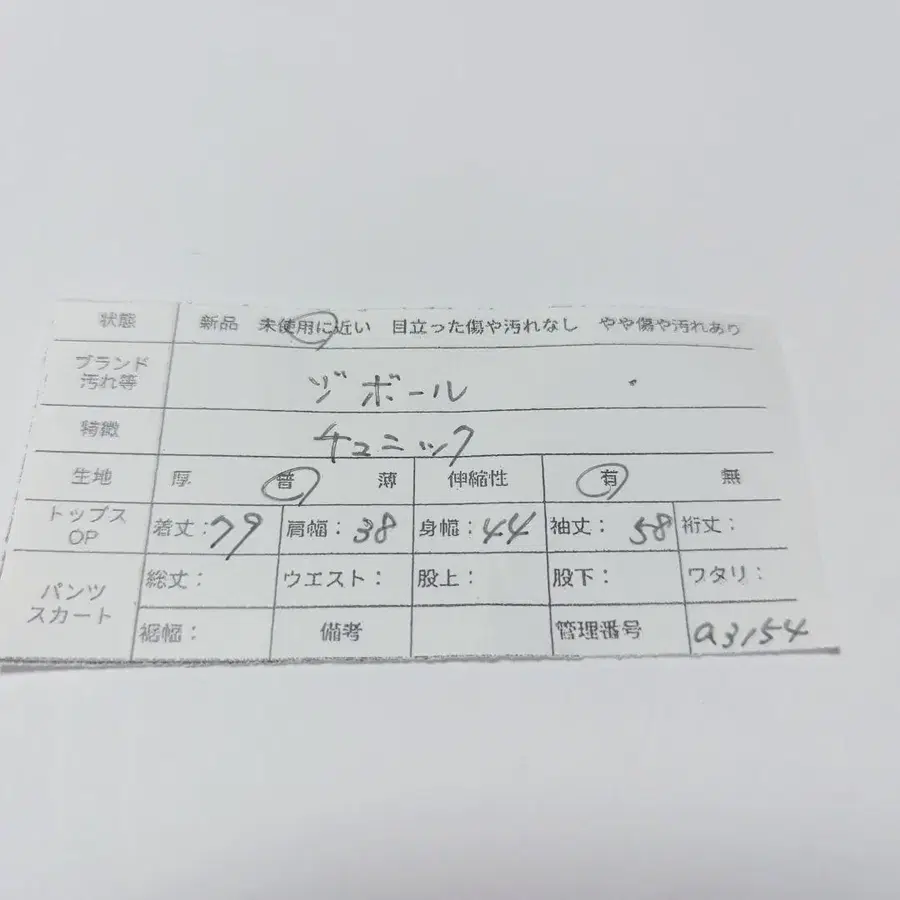 状態 新品 未使用に近い 目立った傷や汚れなし やや傷や汚れあり
ブランド
汚れ等 ジボール
特徴 チュニック
生地 厚 普 薄 伸縮性 有 無
トップス
OP 着丈:79 肩幅:38 身幅:44 袖丈:58 裄丈:
パンツ
スカート 総丈: ウエスト: 股上: 股下: ワタリ:
裾幅: 備考 管理番号 a3154